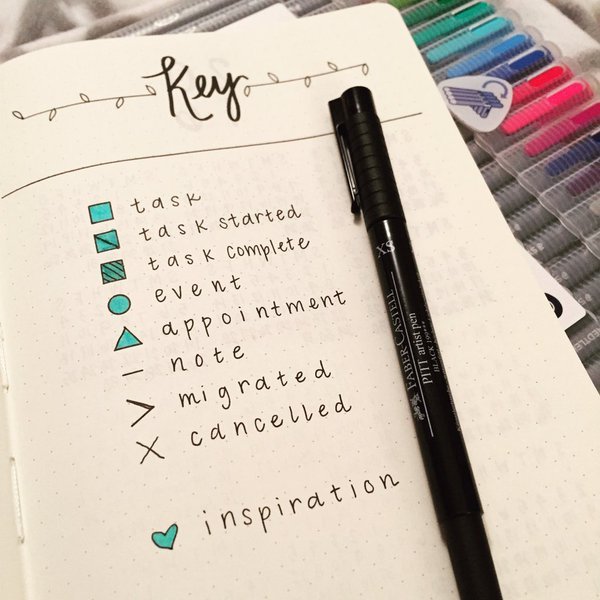 Key
task
task started
task complete
event
appointment
note
migrated
cancelled
inspiration
XS
FABER-CASTELL
PITT artist pen